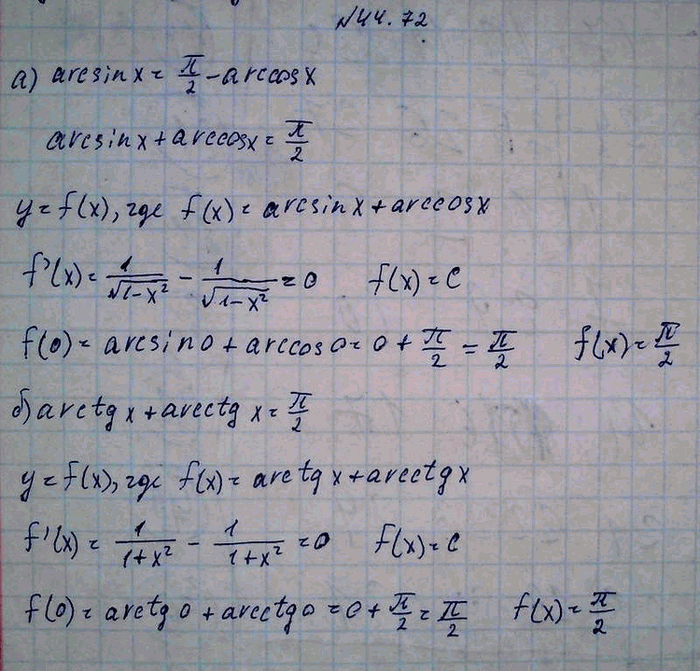 №44.72
а) arcsin x = π/2 - arccos x
arcsin x + arccos x = π/2
y = f(x), где f(x) = arcsin x + arccos x
f'(x) = 1/√(1-x²) - 1/√(1-x²) = 0 f(x) = C
f(0) = arcsin 0 + arccos 0 = 0 + π/2 = π/2 f(x) = π/2
б) arctg x + arcctg x = π/2
y = f(x), где f(x) = arctg x + arcctg x
f'(x) = 1/(1+x²) - 1/(1+x²) = 0 f(x) = C
f(0) = arctg 0 + arcctg 0 = 0 + π/2 = π/2 f(x) = π/2